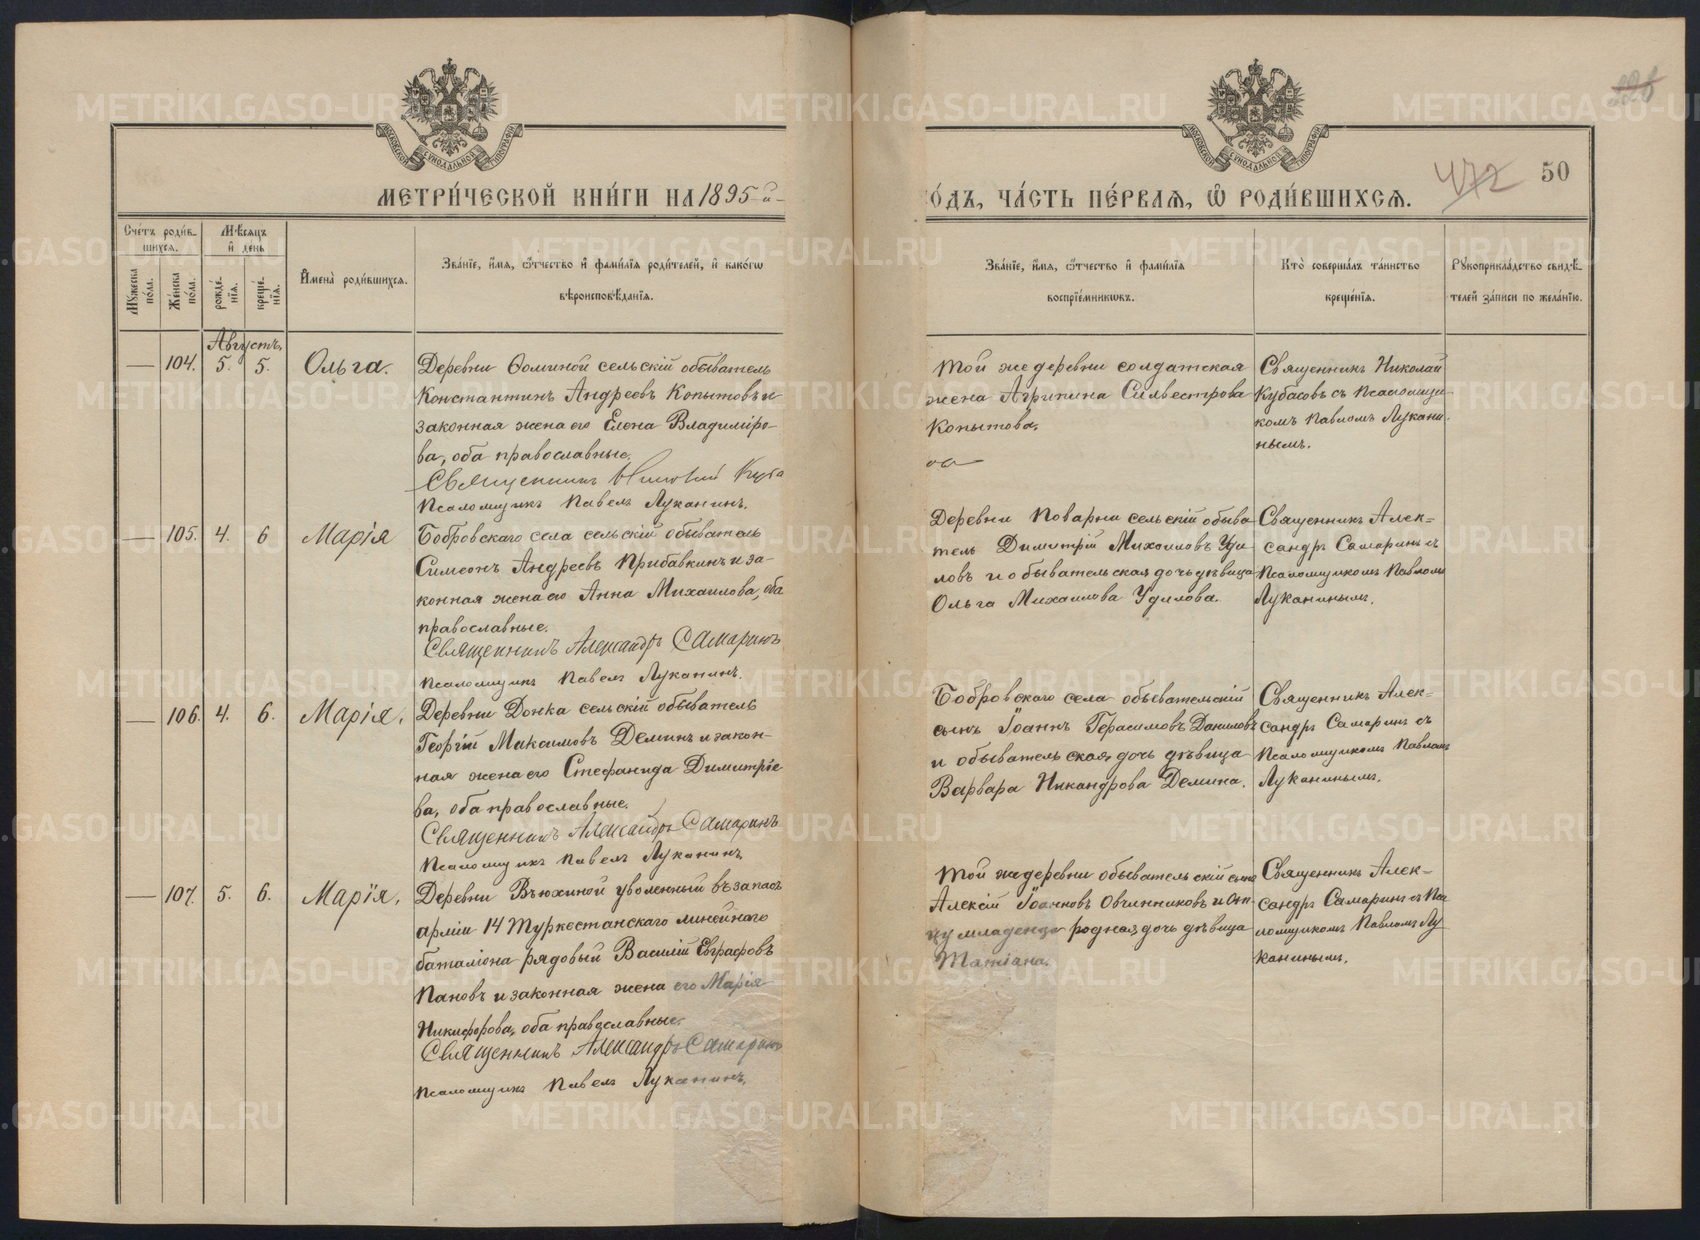 МЕТРИ́ЧЕСКОЙ КНИ́ГИ НА 1895-й
О́ДЪ, ЧА́СТЬ ПЕ́РВАѦ, Ѡ҆ РОДИ́ВШИХСѦ.
472
50
МОСКОВСКОЙ СУНОДАЛЬНОЙ ТИПОГРАФІИ
МОСКОВСКОЙ СУНОДАЛЬНОЙ ТИПОГРАФІИ
Сче́тъ роди́в-
шихсѧ.
Мѣ́сѧцъ
и҆ де́нь
Мꙋ́жеска
по́ла.
Же́нска
по́ла.
рожде́-
нїѧ.
креще́-
нїѧ.
И҆мена̀ роди́вшихсѧ.
Зва́нїе, и҆́мѧ, ѻ҆́тчество и҆ фами́лїѧ роди́телей, и҆ како́гѡ
вѣроисповѣ́данїѧ.
Зва́нїе, и҆́мѧ, ѻ҆́тчество и҆ фами́лїѧ
воспрїе́мникѡвъ.
Кто̀ соверша́лъ та́инство
креще́нїѧ.
Рꙋкоприкла́дство свидѣ́-
телей за́писи по жела́нїю.
Августъ.
— 104. 5. 5. Ольга.
Деревни Ѳоминой сельскій обыватель
Константинъ Андреевъ Копытовъ и
законная жена его Елена Владиміро-
ва, оба православные.
Священникъ Николай Куба
Псаломщикъ Павелъ Луканинъ.
Той же деревни солдатская
жена Агрипина Сильвестрова
Копытова.
Священникъ Николай
Кубасовъ съ Псаломщи-
комъ Павломъ Лукани-
нымъ.
— 105. 4. 6 Марія
Бобровскаго села сельскій обыватель
Симеонъ Андреевъ Прибавкинъ и за-
конная жена его Анна Михаилова, оба
православные.
Священникъ Александръ Самаринъ
Псаломщикъ Павелъ Луканинъ.
Деревни Поварни сельскій обыва-
тель Димитрій Михаиловъ Уди-
ловъ и обывательская дочь дѣвица
Ольга Михаилова Удилова.
Священникъ Алек-
сандръ Самаринъ съ
Псаломщикомъ Павломъ
Луканинымъ.
— 106. 4. 6. Марія.
Деревни Донка сельскій обыватель
Георгій Максимовъ Деминъ и закон-
ная жена его Стефанида Димитріе-
ва, оба православные.
Священникъ Александръ Самаринъ
Псаломщикъ Павелъ Луканинъ.
Бобровскаго села обывательскій
сынъ Іоаннъ Герасимовъ Даниловъ
и обывательская дочь дѣвица
Варвара Никандрова Демина.
Священникъ Алек-
сандръ Самаринъ съ
Псаломщикомъ Павломъ
Луканинымъ.
— 107. 5. 6. Марія.
Деревни Вьюхиной уволенный въ запасъ
арміи 14 Туркестанскаго линейнаго
баталіона рядовый Василій Евграфовъ
Пановъ и законная жена его Марія
Никифорова, оба православные.
Священникъ Александръ Самаринъ
Псаломщикъ Павелъ Луканинъ.
Той же деревни обывательскій сынъ
Алексій Іоанновъ Овчинниковъ и от-
цу младенца родная дочь дѣвица
Татіана.
Священникъ Алек-
сандръ Самаринъ съ Пса
ломщикомъ Павломъ Лу
канинымъ.
METRIKI.GASO-URAL.RU